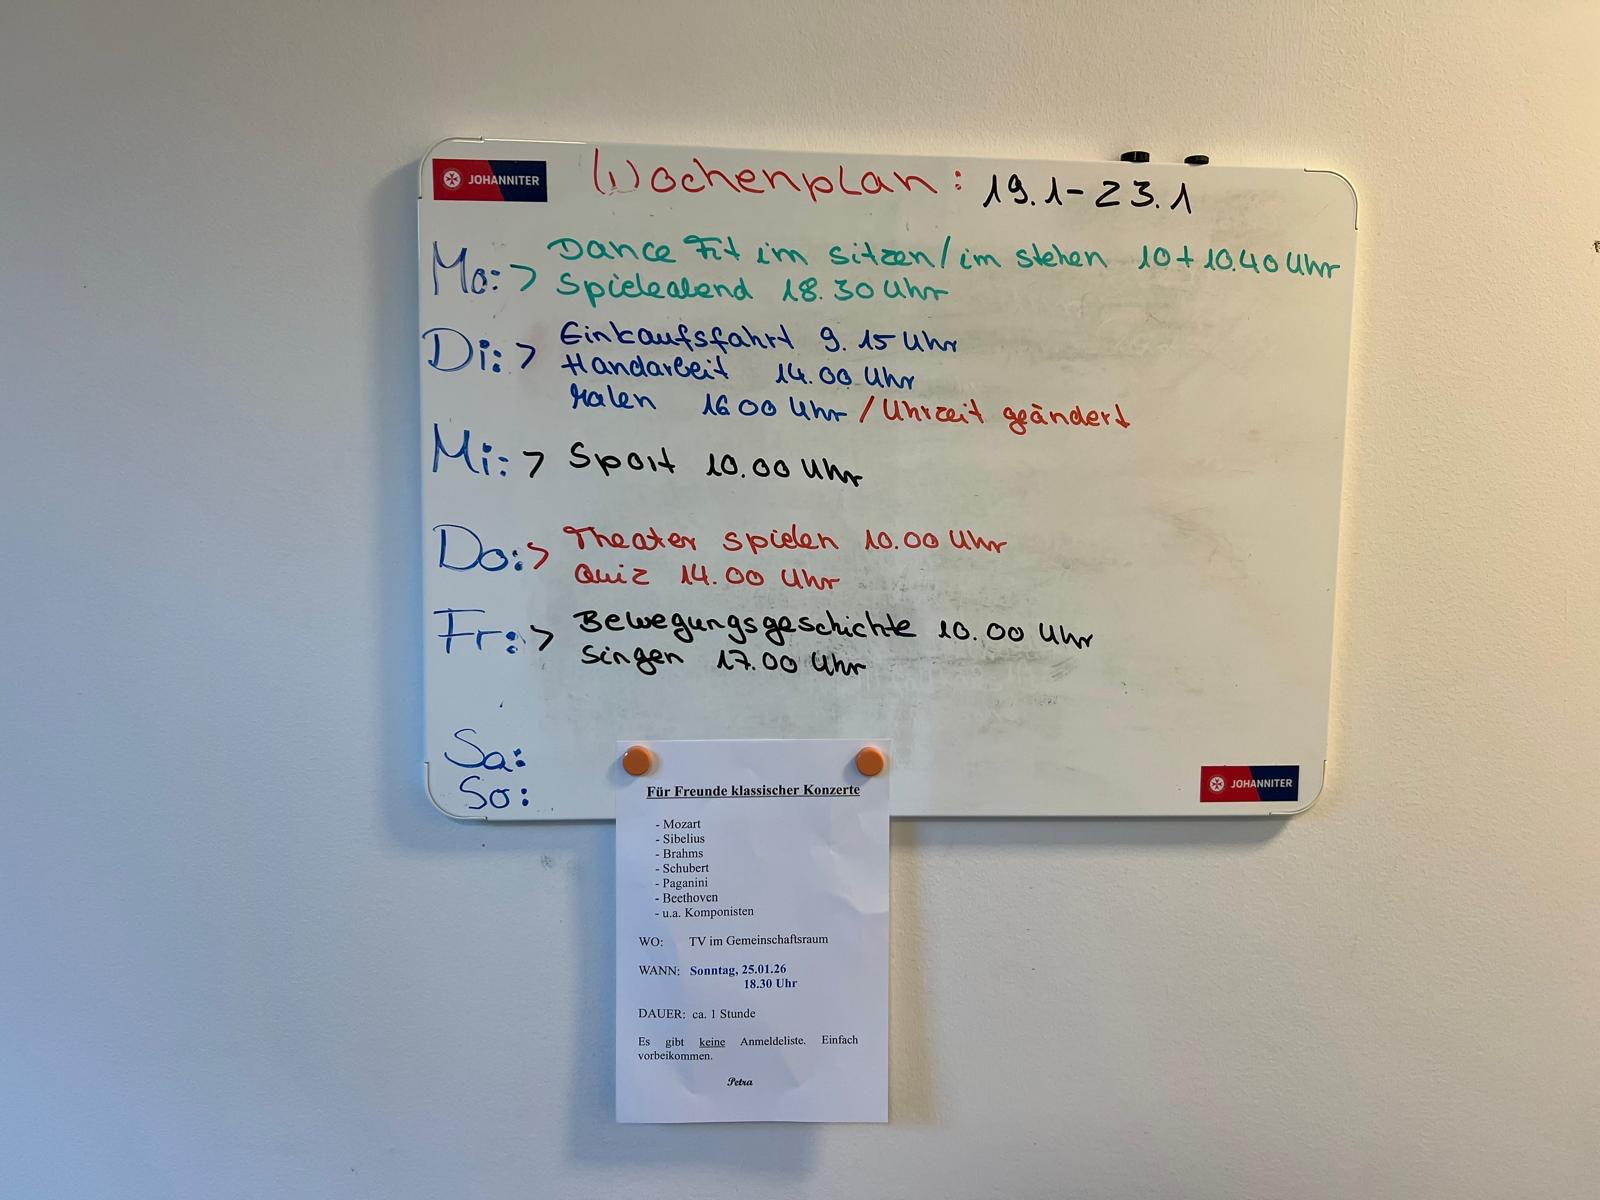 JOHANNITER
Wochenplan: 19.1-23.1
Mo: > Dance Fit im sitzen/im stehen 10+10.40 Uhr
Spieleabend 18.30 Uhr
Di: > Einkaufsfahrt 9.15 Uhr
Handarbeit 14.00 Uhr
Malen 16 00 Uhr / Uhrzeit geändert
Mi: > Sport 10.00 Uhr
Do: > Theater spielen 10.00 Uhr
Quiz 14.00 Uhr
Fr: > Bewegungsgeschichte 10.00 Uhr
Singen 17.00 Uhr
Sa:
So:
JOHANNITER
Für Freunde klassischer Konzerte
- Mozart
- Sibelius
- Brahms
- Schubert
- Paganini
- Beethoven
- u.a. Komponisten
WO: TV im Gemeinschaftsraum
WANN: Sonntag, 25.01.26
18.30 Uhr
DAUER: ca. 1 Stunde
Es gibt keine Anmeldeliste. Einfach
vorbeikommen.
Petra